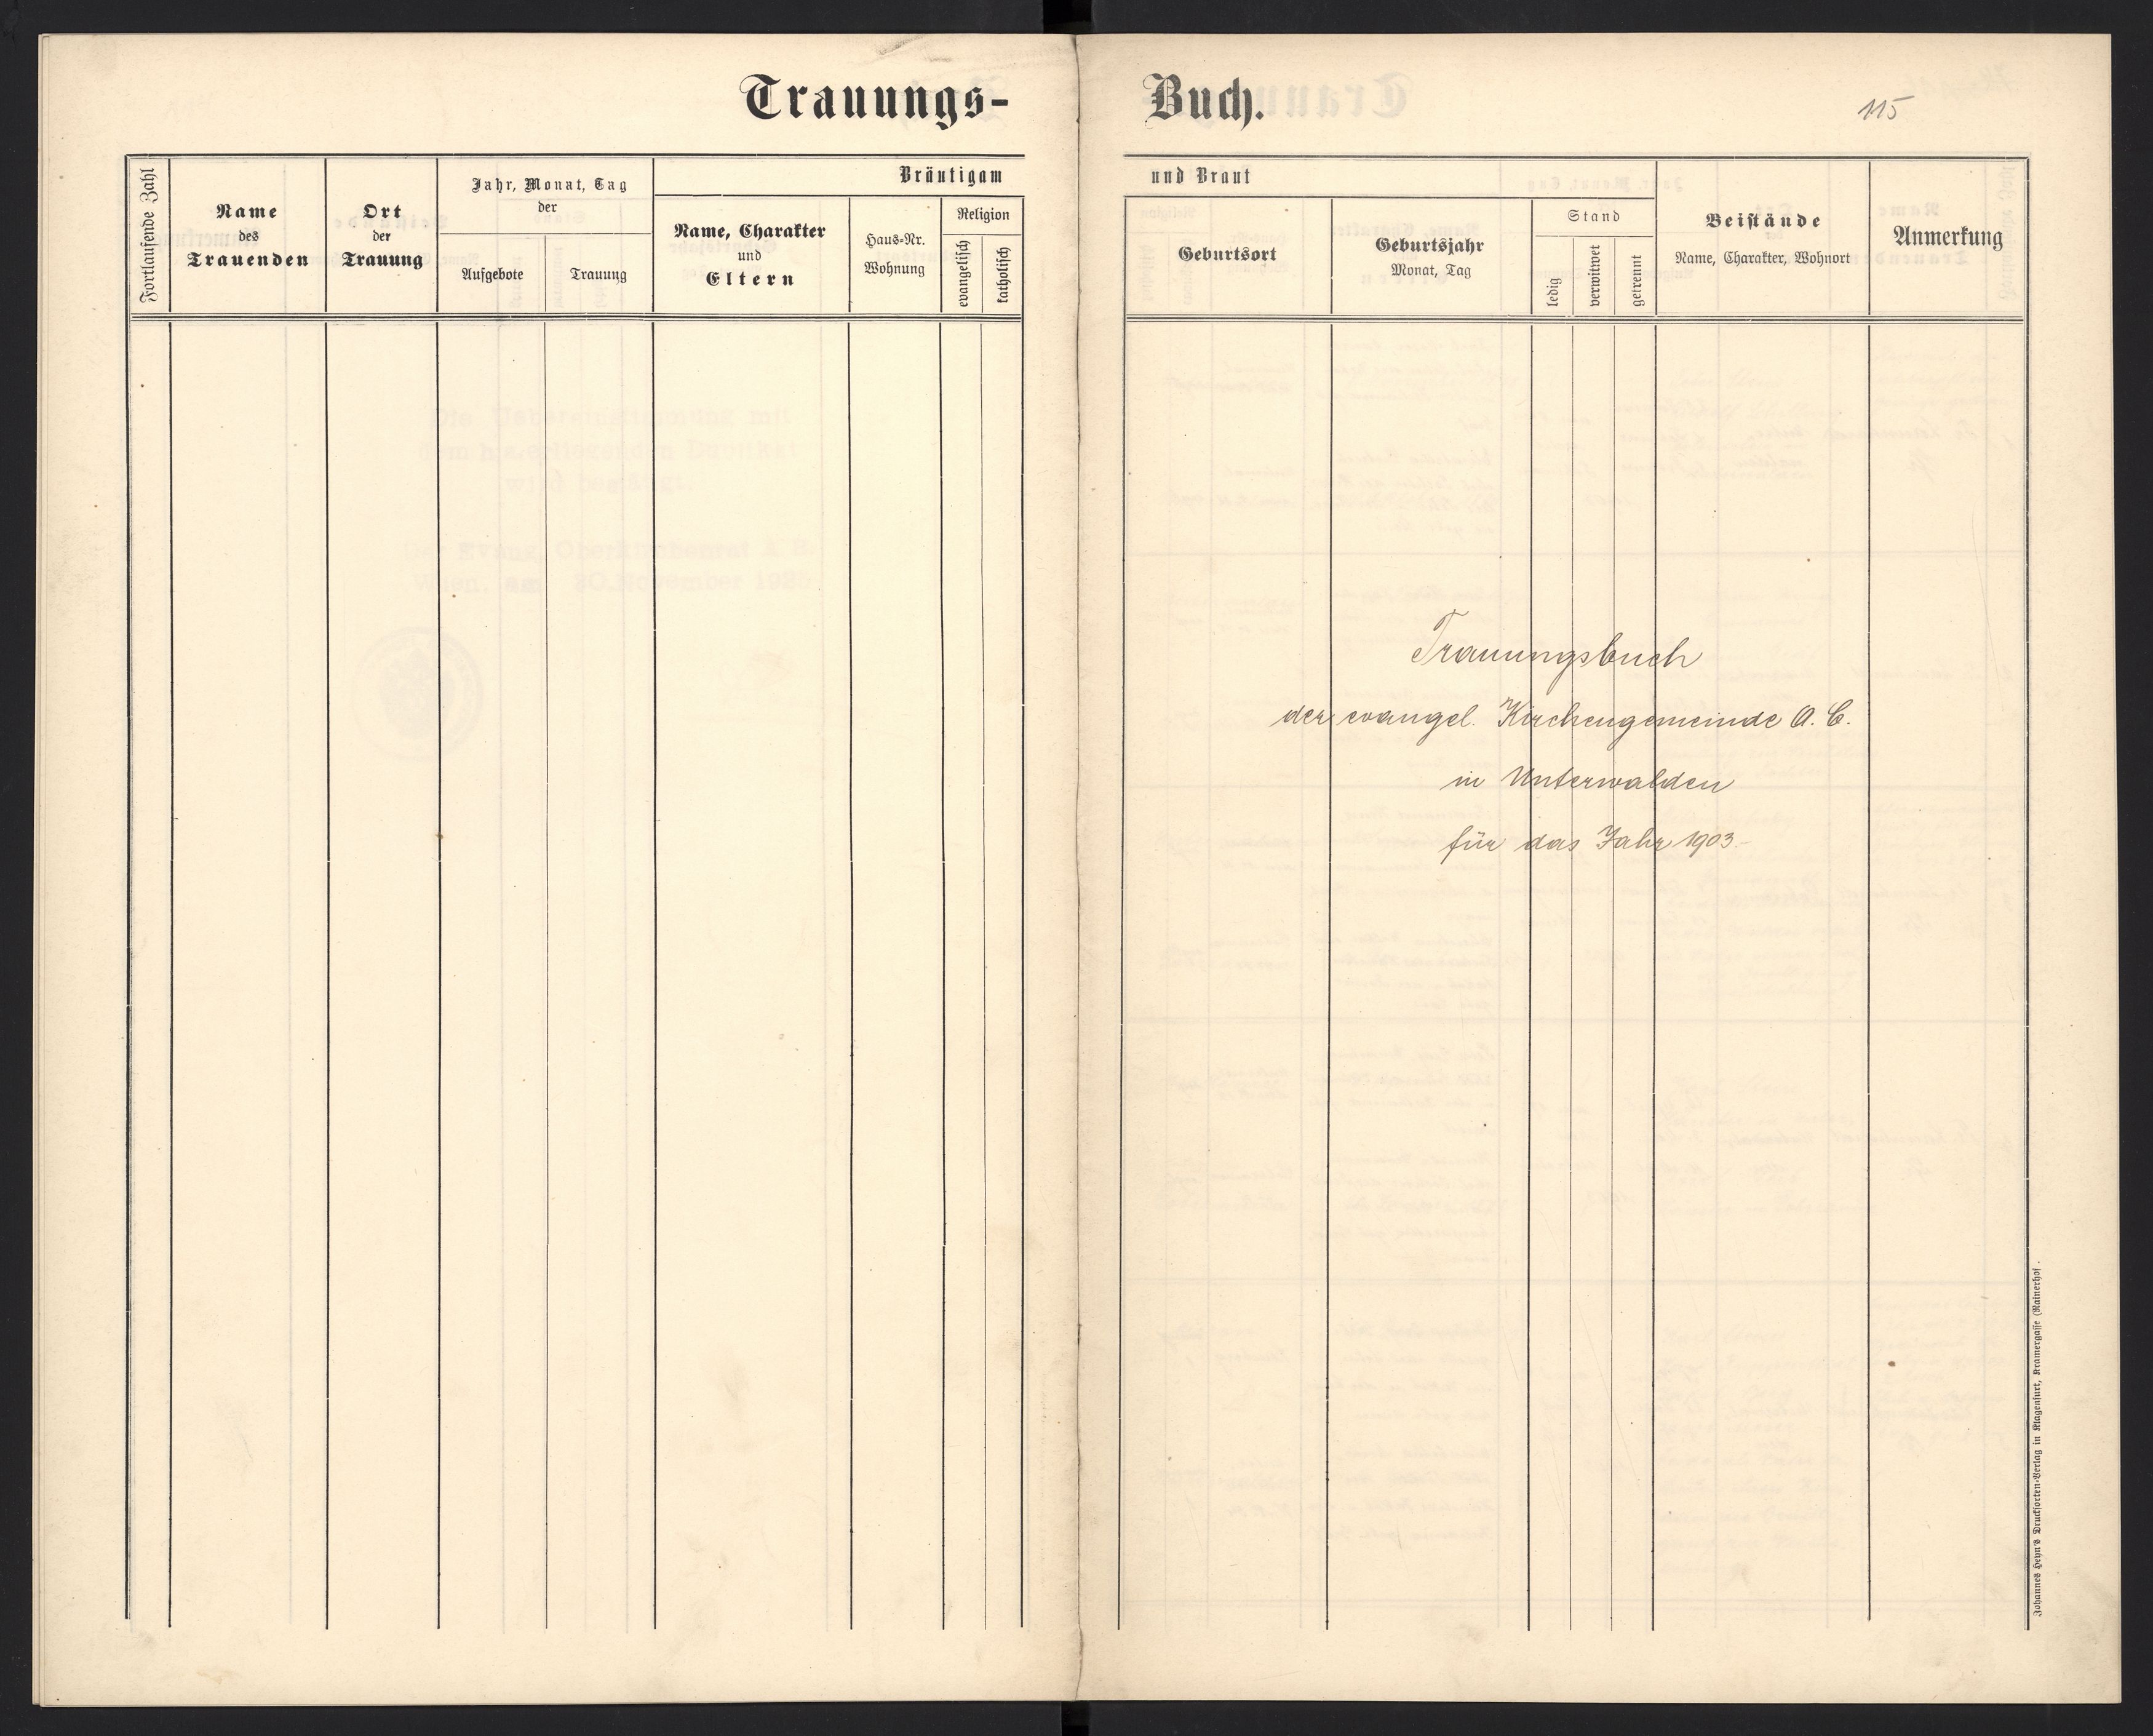 Trauungs-
Fortlaufende Zahl
Name
des
Trauenden
Ort
der
Trauung
Jahr, Monat, Tag
der
Aufgebote
Trauung
Bräutigam
Name, Charakter
und
Eltern
Haus-Nr.
Wohnung
Religion
evangelisch
katholisch
Die Uebereinstimmung mit
wird bestätigt.
Der Evang. Oberkirchenrat A. B.
Wien, am 30. November
Buch.
115
und Braut
Geburtsort
Geburtsjahr
Monat, Tag
Stand
ledig
verwitwet
getrennt
Beistände
Name, Charakter, Wohnort
Anmerkung
Trauungsbuch
der evangel. Kirchengemeinde A. C.
in Unterwalden
für das Jahr 1903.-
Johannes Heyn's Drucksorten-Verlag in Klagenfurt, Kramergasse (Rainerhof.